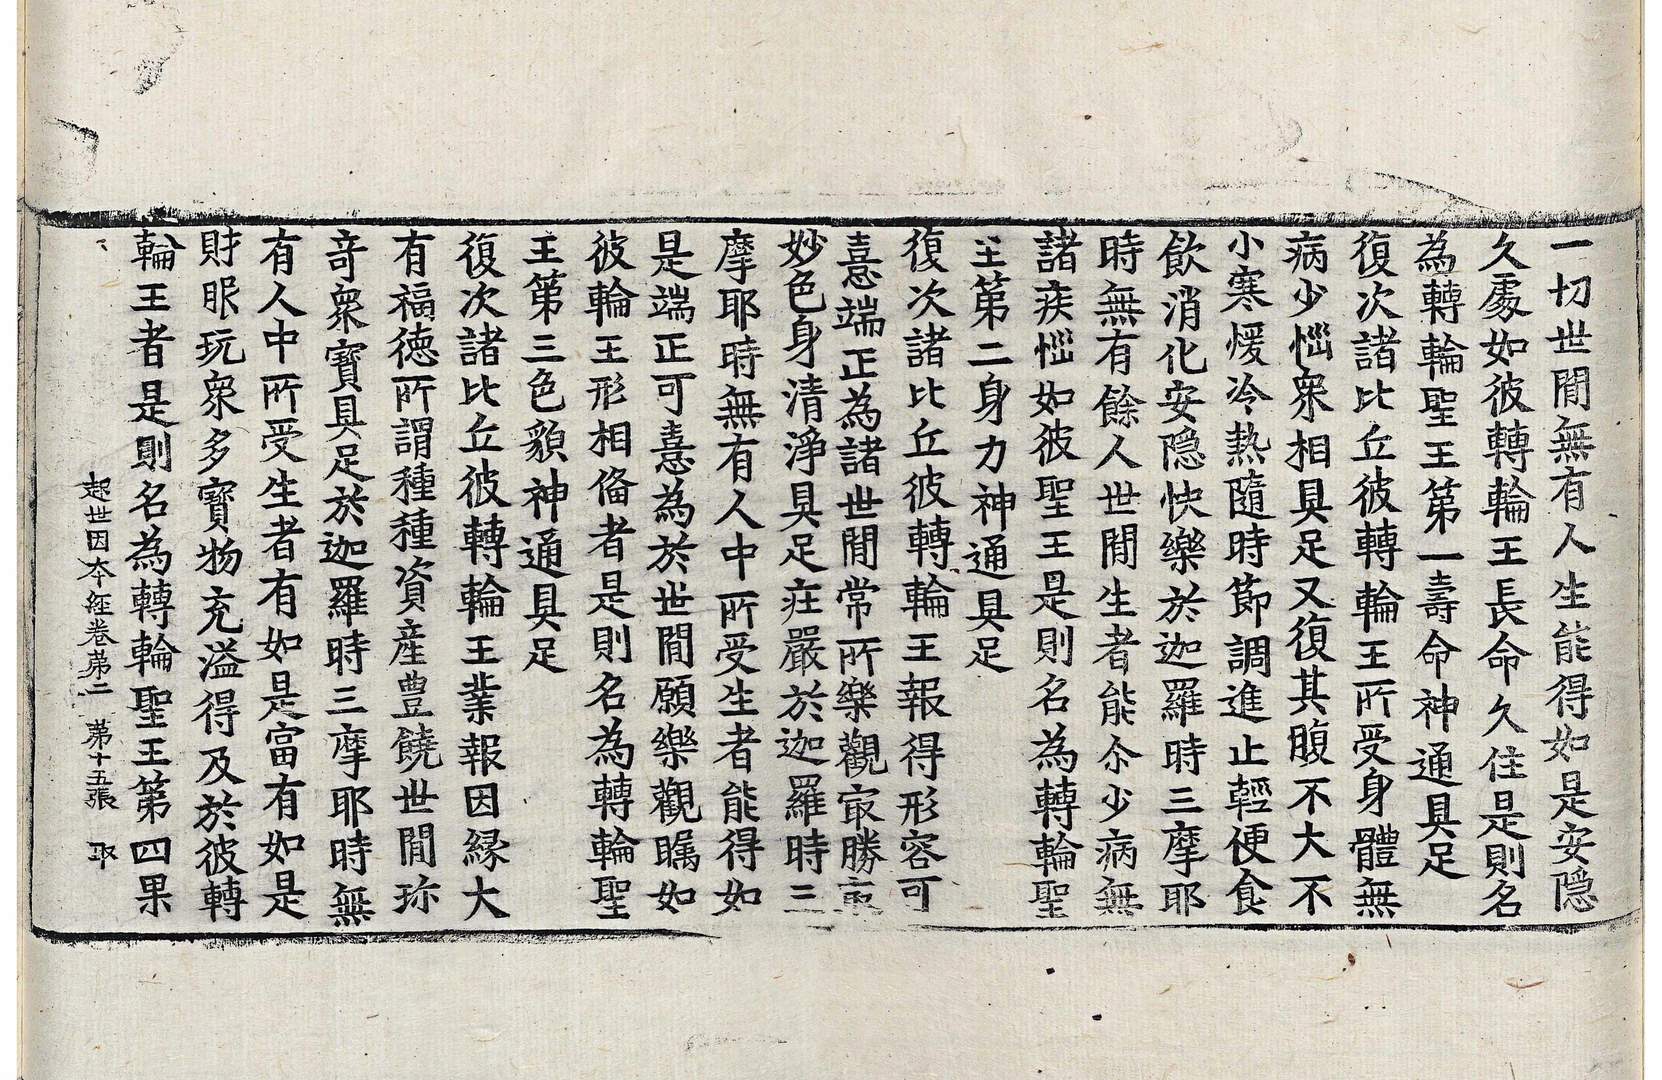 一切世間無有人生能得如是安隱
久處如彼轉輪王長命久住是則名
為轉輪聖王第一壽命神通具足
復次諸比丘彼轉輪王所受身體無
病少惱衆相具足又復其腹不大不
小寒煖冷熱隨時節調進止輕便食
飲消化安隱快樂於迦羅時三摩耶
時無有餘人世間生者能尒少病無
諸疾惱如彼聖王是則名為轉輪聖
王第二身力神通具足
復次諸比丘彼轉輪王報得形容可
憙端正為諸世間常所樂觀冣勝冣
妙色身清淨具足莊嚴於迦羅時三
摩耶時無有人中所受生者能得如
是端正可憙為於世間願樂觀矚如
彼輪王形相俻者是則名為轉輪聖
王第三色貌神通具足
復次諸比丘彼轉輪王業報因緣大
有福德所謂種種資産豊饒世間珎
竒衆寶具足於迦羅時三摩耶時無
有人中所受生者有如是富有如是
財賑玩衆多寶物充溢得及於彼轉
輪王者是則名為轉輪聖王第四果
起世因本經卷第二 第十五張 取